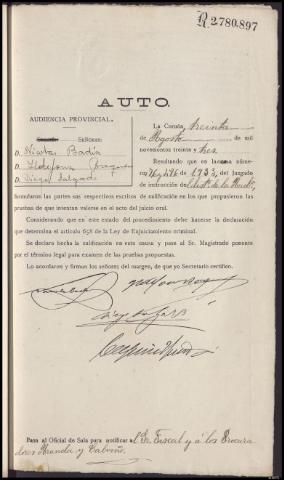 R.2.780.897
AUTO.
AUDIENCIA PROVINCIAL.
Señores:
D. Nicolas Badia
D. Ildefonso
D. Diego Salgado
La Coruña, treinta
de Agosto de mil
novecientos treinta y tres
Resultando que en la causa
de 1933 del Juzgado
de instrucción de
formularon las partes sus respectivos escritos de calificación en los que propusieron las
pruebas de que intentan valerse en el acto del juicio oral.
Considerando que en este estado del procedimiento debe hacerse la declaración
que determina el artículo 658 de la Ley de Enjuiciamiento criminal.
Se declara hecha la calificación en esta causa y pase al Sr. Magistrado ponente
por el término legal para examen de las pruebas propuestas.
Lo acordaron y firman los señores del margen, de que yo Secretario certifico.
Pasa al Oficial de Sala para notificar al Sr. Fiscal y á los Procura
dores Miranda y